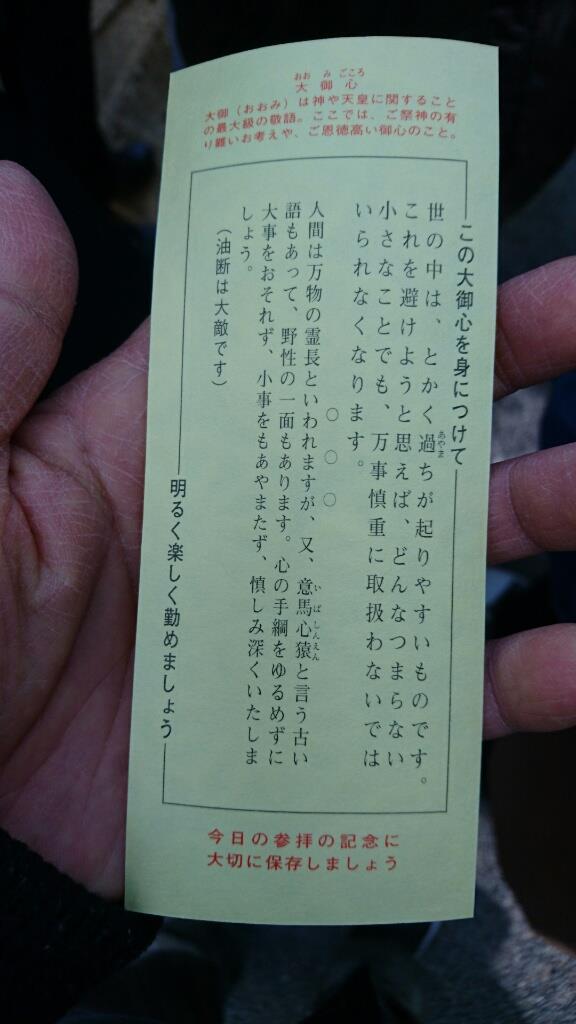 おおみごころ
大御心
大御（おおみ）は神や天皇に関すること
の最大級の敬語。ここでは、ご祭神の有
り難いお考えや、ご恩徳高い御心のこと。
この大御心を身につけて
世の中は、とかく過ちが起りやすいものです。
あやま
これを避けようと思えば、どんなつまらない
小さなことでも、万事慎重に取扱わないでは
いられなくなります。
○○○
人間は万物の霊長といわれますが、又、意馬心猿と言う古い
いばしんえん
語もあって、野性の一面もあります。心の手綱をゆるめずに
大事をおそれず、小事をもあやまたず、慎しみ深くいたしま
しょう。
（油断は大敵です）
明るく楽しく勤めましょう
今日の参拝の記念に
大切に保存しましょう